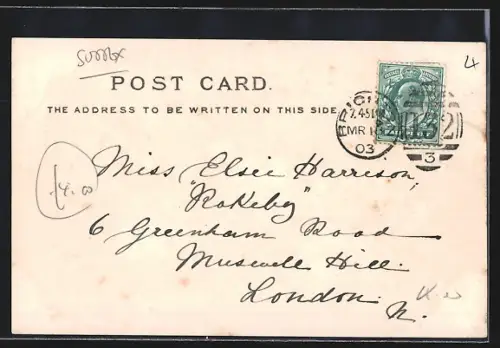 Sussex
4
POST CARD.
THE ADDRESS TO BE WRITTEN ON THIS SIDE
7.45 PM
MR 18
03
132
3
Miss Elsie Harrison,
"Rokeby"
6 Greenham Road
Muswell Hill.
London.
N.